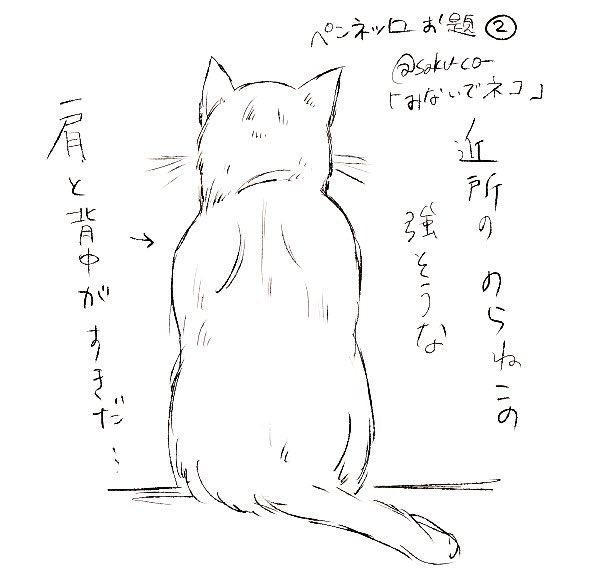 ペンネッロ お題 ②
@saku-co-
「みないでネコ」
近所の のらねこの
強そうな
肩と背中がすきだ…